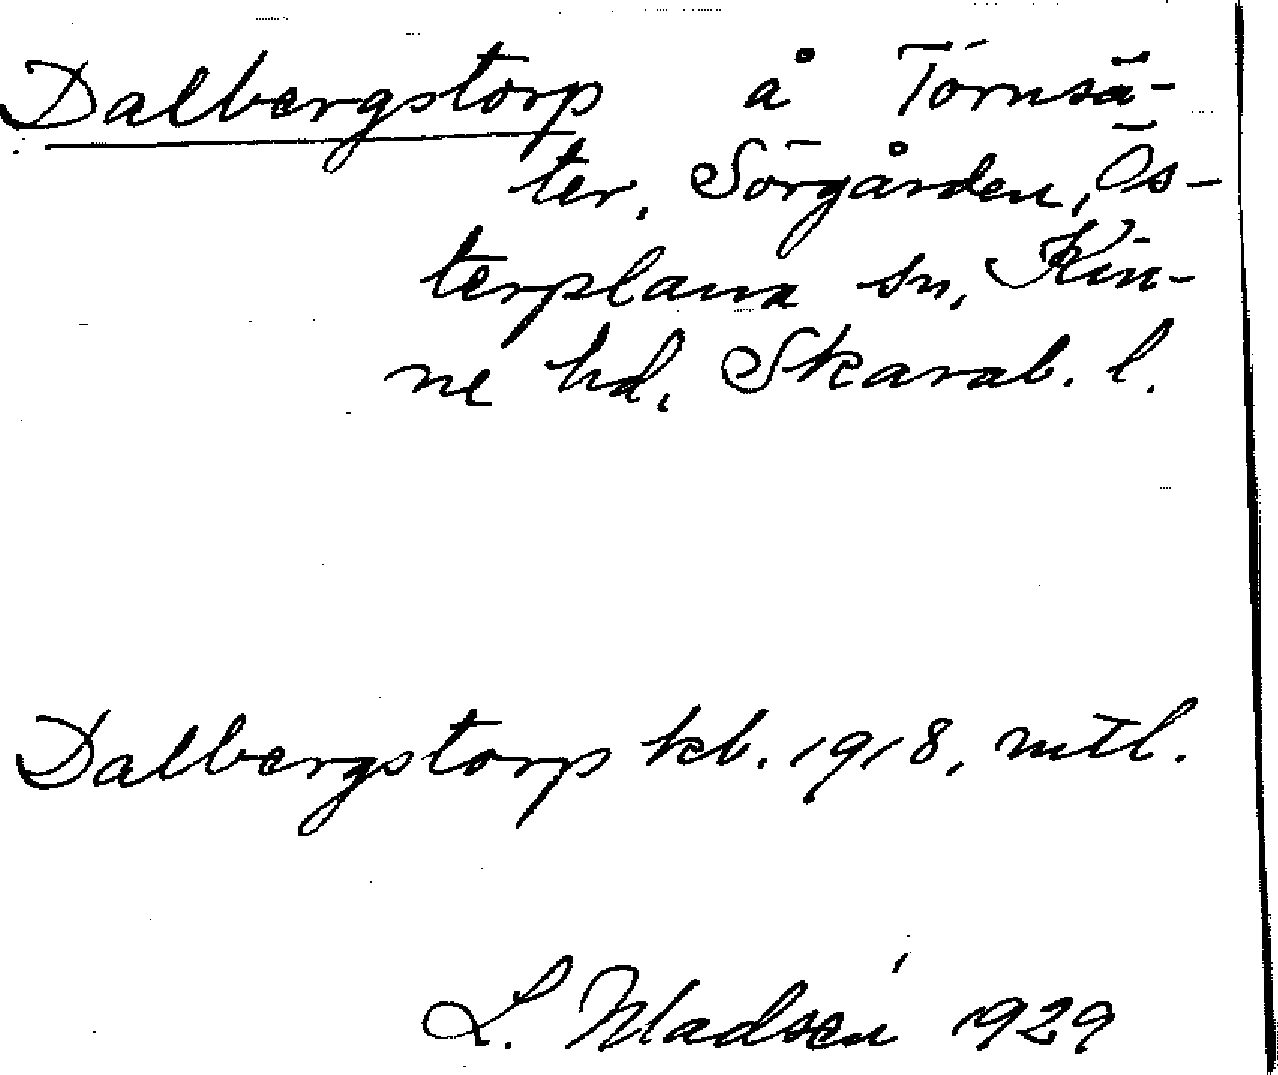 Dalbergstorp å Törnsä-
ter, Sörgården, Ös-
terplana sn, Kin-
ne hd, Skarab. l.
Dalbergstorp kb. 1918, mtl.
L. Madsén 1929